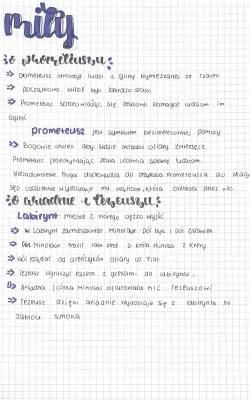 mity
o prometeuszu:
⇒ Prometeusz stworzył ludzi z gliny wymieszanej ze łzami
⇒ początkowo ludzie byli bardzo słabi
⇒ Prometeusz sprzeciwiając się zeusowi pomagał ludziom im
ogień
prometeusz jest symbolem bezinteresownej pomocy
⇒ Bogowie chcieli aby ludzie składali ofiary zwierzęce
Prometeusz zeusa ułatwia sprawę ludziom.
bogu prometeusza do skały
Sęp codziennie wydziobuje mu wątrobę, która odrasta przez noc
o ariadnie i tezeuszu:
Labirynt - miejsce z którego ciężko wyjść
⇒ w Labiryncie zamieszkiwał minotaur - pół byk i pół człowiek
⇒ Minotaur trafił tam z króla minosa z krety
⇒ król żądał od ateńczyków ofiary
⇒ Tezeusz wyruszył razem z grekami do labiryntu.
⇒ Ariadna (córka minosa) ofiarowała nić Tezeuszowi
⇒ Tezeusz dzięki ariadnie wydostaje się z labiryntu po
zabiciu smoka